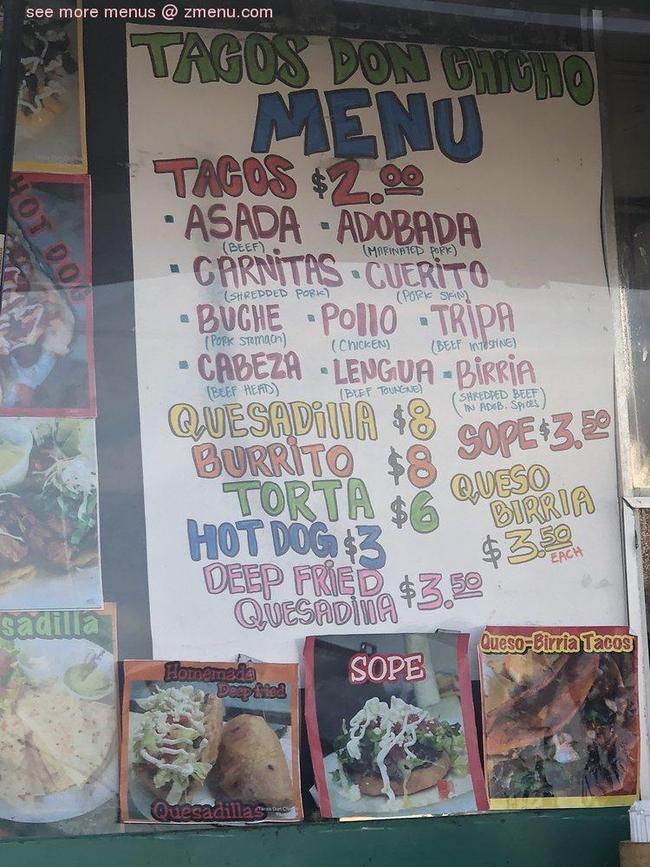 see more menus @ zmenu.com
TACOS DON CHICHO
MENU
TACOS $2.00
ASADA ADOBADA
(BEEF) (MARINATED PORK)
CARNITAS CUERITO
(SHREDDED PORK) (PORK SKIN)
BUCHE POLLO TRIPA
(PORK STOMACH) (CHICKEN) (BEEF INTESTINE)
CABEZA LENGUA BIRRIA
(BEEF HEAD) (BEEF TOUNGUE) (SHREDDED BEEF
IN ADOB. SPICES)
QUESADILLA $8
BURRITO $8
TORTA $6
HOT DOG $3
DEEP FRIED
QUESADILLA $3.50
SOPE $3.50
QUESO
BIRRIA
$3.50
EACH
HOT DOG
sadilla
Homemade
Deep fried
Quesadillas
SOPE
Queso-Birria Tacos